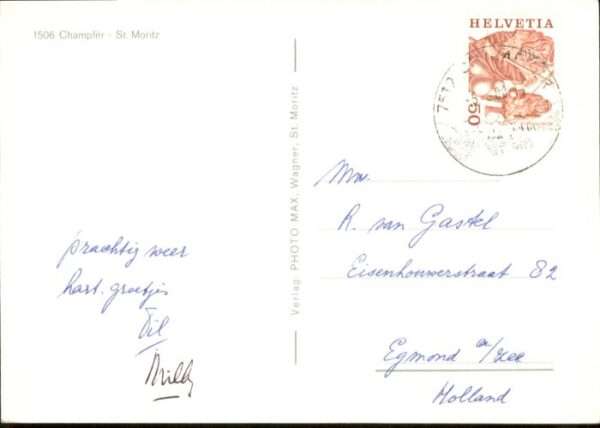 1506 Champfèr - St. Moritz
HELVETIA
50
prachtig weer
hart. groetjes
Til
Willy
Verlag: PHOTO MAX, Wagner, St. Moritz
Mw.
R. van Gastel
Eisenhouwerstraat 82
Egmond a/zee
Holland